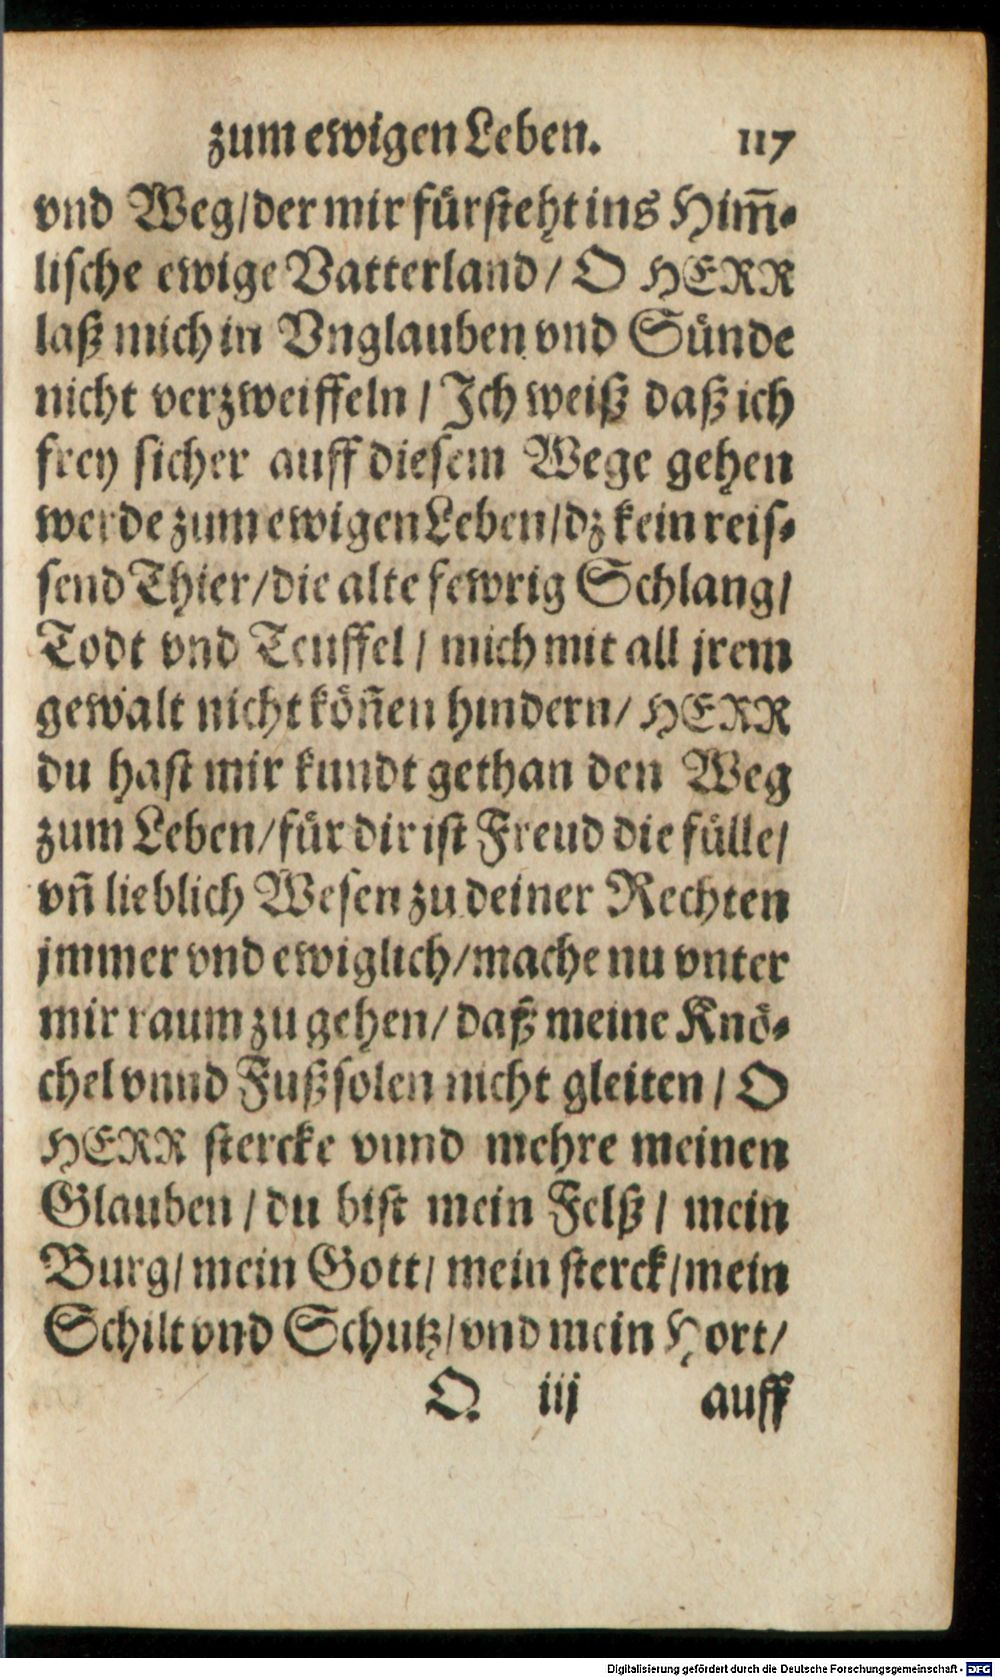 zum ewigen Leben. 117
vnd Weg/der mir fürsteht ins Him̃-
lische ewige Vatterland/ O HERR
laß mich in Vnglauben vnd Sünde
nicht verzweiffeln / Ich weiß daß ich
frey sicher auff diesem Wege gehen
werde zum ewigen Leben/dz kein reis-
send Thier/die alte fewrig Schlang/
Todt vnd Teuffel / mich mit all jrem
gewalt nicht köñen hindern/ HERR
du hast mir kundt gethan den Weg
zum Leben/für dir ist Freud die fülle/
vñ lieblich Wesen zu deiner Rechten
jmmer vnd ewiglich/mache nu vnter
mir raum zu gehen/ daß meine Knö-
chel vnnd Fußsolen nicht gleiten / O
HERR stercke vnnd mehre meinen
Glauben / du bist mein Felß / mein
Burg/ mein Gott/ mein sterck/mein
Schilt vnd Schutz/vnd mein Hort/
Q iij auff
Digitalisierung gefördert durch die Deutsche Forschungsgemeinschaft - DFG